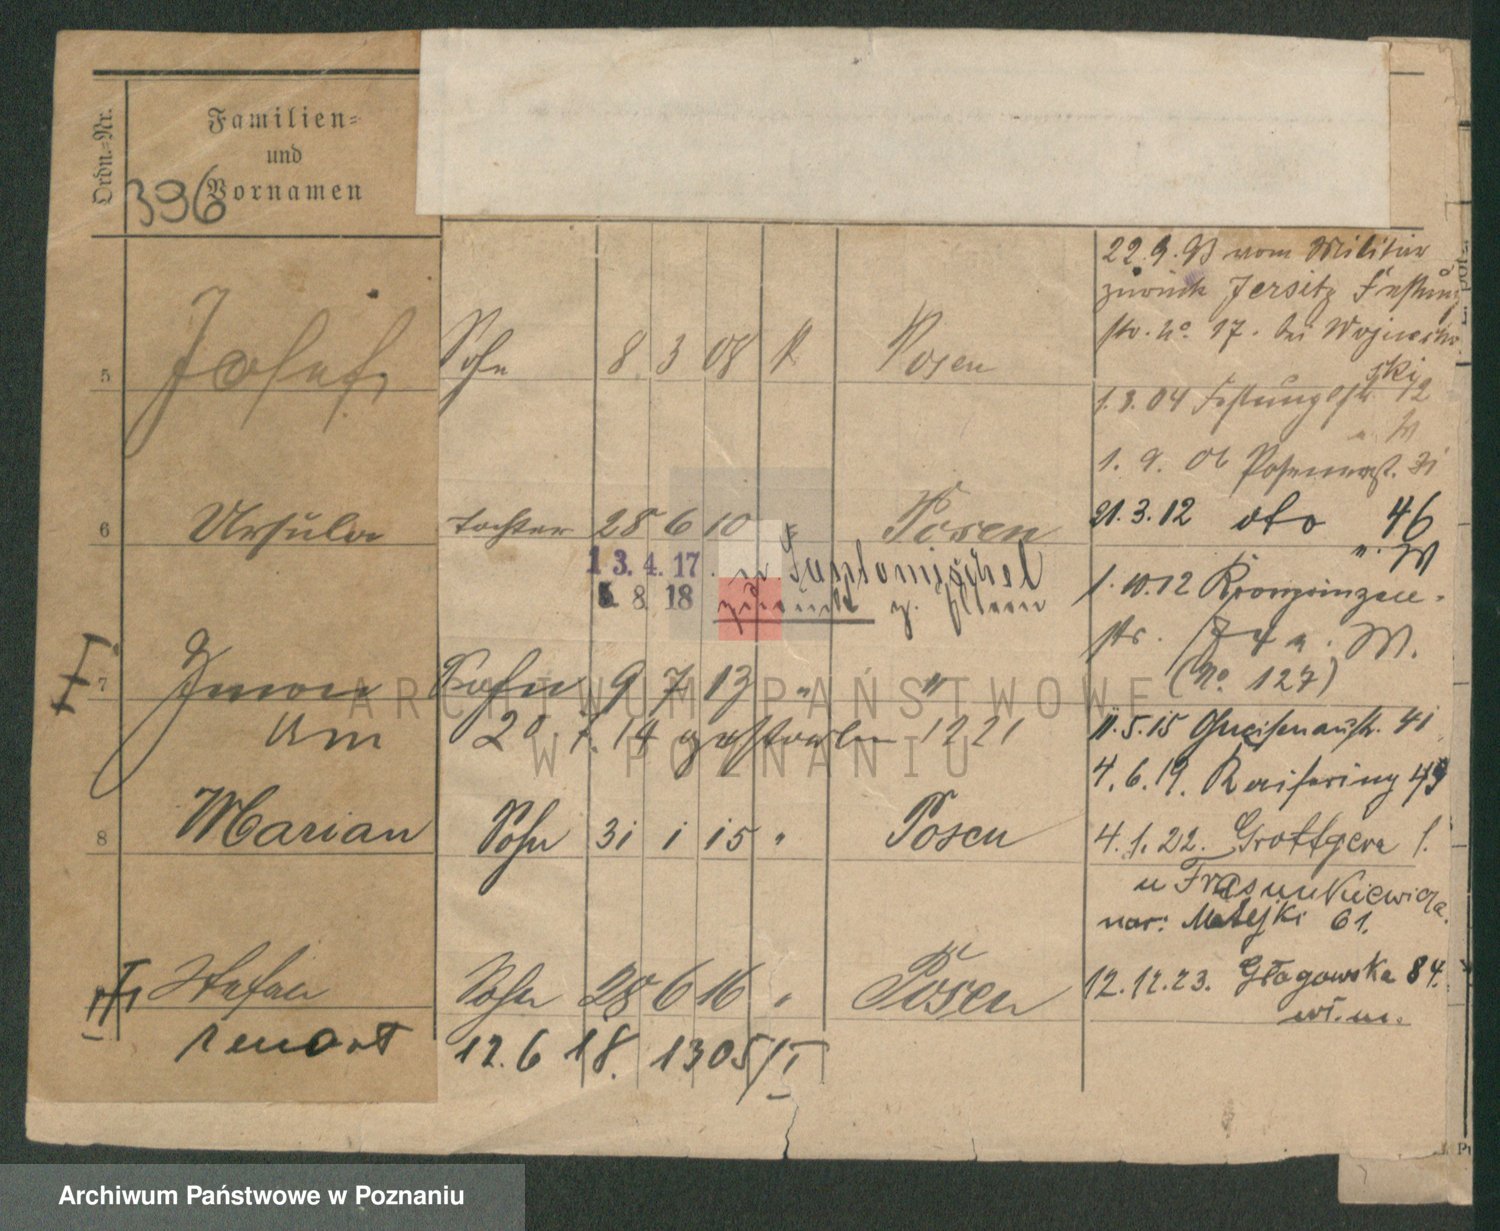 Ordn.-Nr.
Familien-
und
Vornamen
396
5 Josef, Sohn 8 3 08 k Posen
6 Ursula Tochter 28 6 10 Posen
1 3. 4. 17 n. Santomischel
5. 8 18 zurück v.
7 Sohn 9 7 13 " "
am 20. 7. 14 gestorben 1221
8 Marian Sohn 31 1 15 " Posen
Stefan Sohn 28 6 16 " Posen
12. 6 18. 1305/I
22. 9. 93 vom Militär
zurück Jersitz Festung
str. No. 17. bei
ski
1. 3. 04 Festungsstr 12
1. 9. 06 31
21. 3. 12 dto 46
n. W
1. 10. 12 Kronprinzen-
str. W.
(No. 127)
11. 5. 15 Gneisenaustr. 41
4. 6. 19. Kaiserring 49
4. 1. 22. Grottgera 1.
u Frasunkiewicza
nar. Matejki 61.
12. 12. 23. Głogowska 84.
wł. m.
ARCHIWUM PAŃSTWOWE
W POZNANIU
Archiwum Państwowe w Poznaniu